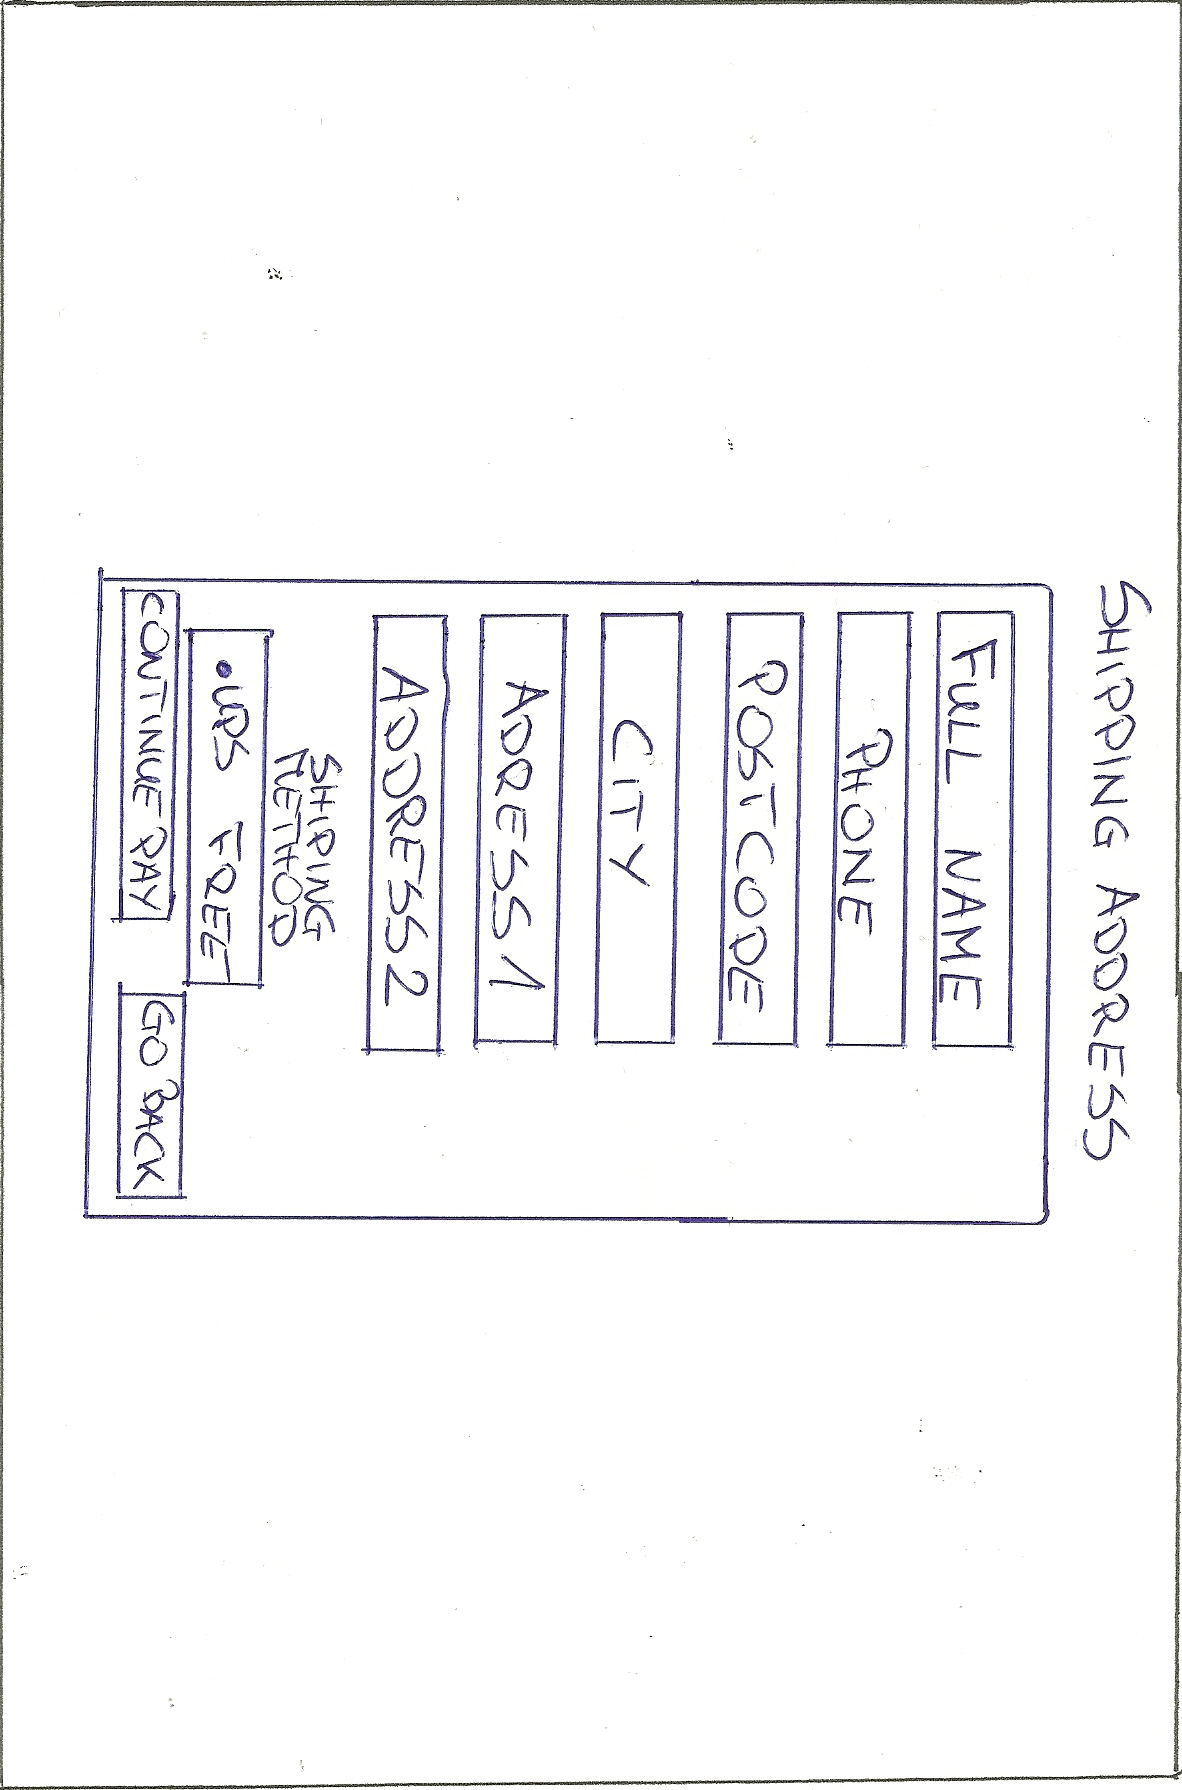 SHIPPING ADDRESS
FULL NAME
PHONE
POSTCODE
CITY
ADDRESS 1
ADDRESS 2
SHIPING
METHOD
.UPS FREE
CONTINUE PAY
GO BACK